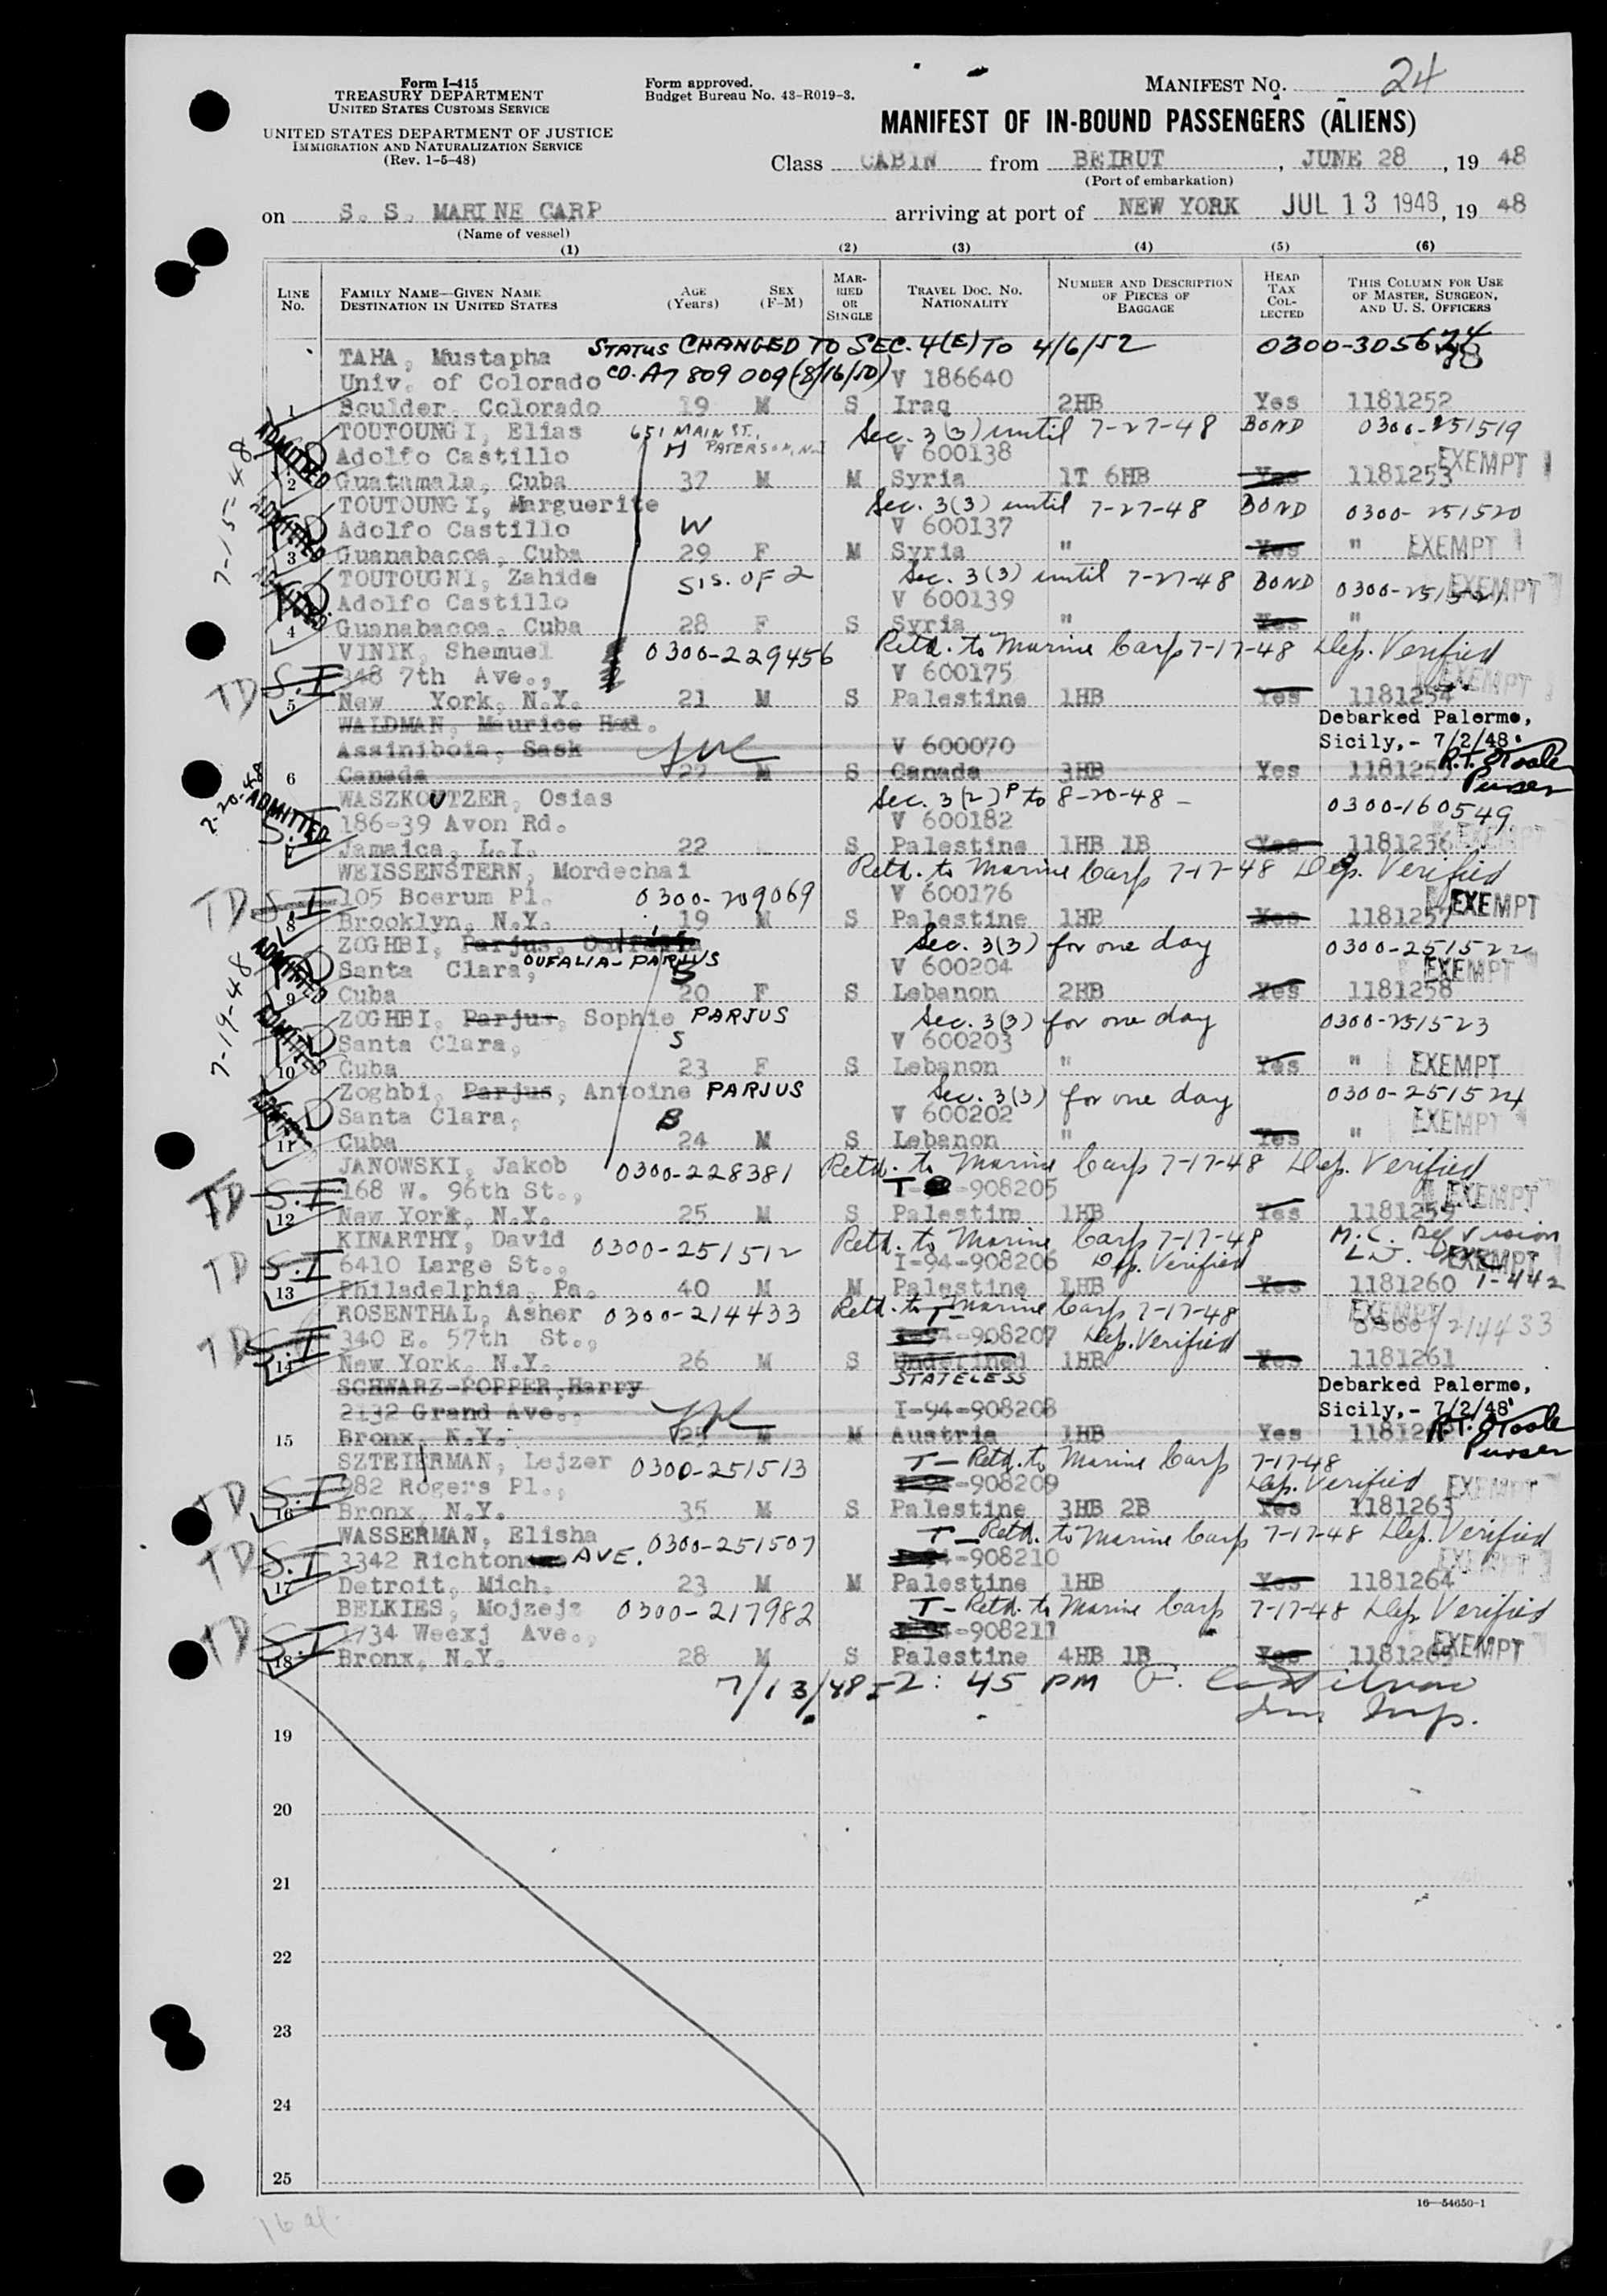 Form I-415
TREASURY DEPARTMENT
UNITED STATES CUSTOMS SERVICE
UNITED STATES DEPARTMENT OF JUSTICE
IMMIGRATION AND NATURALIZATION SERVICE
(Rev. 1-5-48)
Form approved.
Budget Bureau No. 43-R019-3.
MANIFEST NO. 24
MANIFEST OF IN-BOUND PASSENGERS (ALIENS)
Class CABIN from BEIRUT, JUNE 28, 19 48
(Port of embarkation)
on S. S. MARINE CARP arriving at port of NEW YORK JUL 13 1948, 19 48
(Name of vessel)
(1) (2) (3) (4) (5) (6)
LINE NO. FAMILY NAME—GIVEN NAME DESTINATION IN UNITED STATES AGE (Years) SEX (F-M) MARRIED OR SINGLE TRAVEL DOC. NO. NATIONALITY NUMBER AND DESCRIPTION OF PIECES OF BAGGAGE HEAD TAX COLLECTED THIS COLUMN FOR USE OF MASTER, SURGEON, AND U. S. OFFICERS
TAHA, Mustapha STATUS CHANGED TO SEC. 4(E) TO 4/6/52 0300-305674
Univ. of Colorado CO. A7 809 009 (8/16/50) V 186640
1 Boulder, Colorado 19 M S Iraq 2HB Yes 1181252
TOUTOUNGI, Elias 651 MAIN ST., PATERSON, N.J. Sec. 3(3) until 7-27-48 BOND 0300-251519
Adolfo Castillo H V 600138 EXEMPT
ADMITTED 7-15-48
2 Guatamala, Cuba 37 M M Syria 1T 6HB Yes 1181253
TOUTOUNGI, Marguerite Sec. 3(3) until 7-27-48 BOND 0300-251520
Adolfo Castillo W V 600137
3 Guanabacoa, Cuba 29 F M Syria " Yes " EXEMPT
TOUTOUGNI, Zahide SIS. OF 2 Sec. 3(3) until 7-27-48 BOND 0300-251521 EXEMPT
Adolfo Castillo V 600139
4 Guanabacoa, Cuba 28 F S Syria " Yes "
VINIK, Shemuel 0300-229456 Retd. to Marine Carp 7-17-48 Dep. Verified
TD S.I 348 7th Ave., V 600175 EXEMPT
5 New York, N.Y. 21 M S Palestine 1HB Yes 1181254
WALDMAN, Maurice Hed. Debarked Palermo,
Assiniboia, Sask V 600070 Sicily,- 7/2/48.
6 Canada 22 M S Canada 3HB Yes 1181255 R.T. O'Toole Purser
WASZKOUTZER, Osias Sec. 3(2) P to 8-20-48 - 0300-160549
ADMITTED S.I 186-39 Avon Rd. V 600182
7 Jamaica, L.I. 22 S Palestine 1HB 1B Yes 1181256 EXEMPT
WEISSENSTERN, Mordechai Retd. to Marine Carp 7-17-48 Dep. Verified
TD S.I 105 Boerum Pl. 0300-209069 V 600176
8 Brooklyn, N.Y. 19 M S Palestine 1HB Yes 1181257 EXEMPT
ZOGHBI, Parjus, OUFALIA-PARJUS Sec. 3(3) for one day 0300-251522
ADMITTED Santa Clara, S V 600204 EXEMPT
9 Cuba 20 F S Lebanon 2HB Yes 1181258
7-19-48
ZOGHBI, Parjus, Sophie PARJUS Sec. 3(3) for one day 0300-251523
ADMITTED Santa Clara, S V 600203
10 Cuba 23 F S Lebanon " Yes " EXEMPT
Zoghbi, Parjus, Antoine PARJUS Sec. 3(3) for one day 0300-251524
Santa Clara, B V 600202 EXEMPT
11 Cuba 24 M S Lebanon " Yes "
JANOWSKI, Jakob 0300-228381 Retd. to Marine Carp 7-17-48 Dep. Verified
TD S.I 168 W. 96th St., T- -908205 EXEMPT
12 New York, N.Y. 25 M S Palestim 1HB Yes 1181259
KINARTHY, David 0300-251512 Retd. to Marine Carp 7-17-48
TD S.I 6410 Large St., I-94-908206 Dep. Verified EXEMPT
13 Philadelphia, Pa. 40 M M Palestine 1HB Yes 1181260 I-442
ROSENTHAL, Asher 0300-214433 Retd. to Marine Carp 7-17-48 EXEMPT
TD S.I 340 E. 57th St., T- -908207 Dep. Verified 214433
14 New York, N.Y. 26 M S Underined 1HB Yes 1181261
STATELESS
SCHWARZ-POPPER, Harry Debarked Palermo,
2132 Grand Ave., I-94-908208 Sicily,- 7/2/48.
15 Bronx, N.Y. 25 M M Austria 1HB Yes R.T. O'Toole Purser
SZTEIERMAN, Lejzer 0300-251513 T- Retd. to Marine Carp 7-17-48
TD S.I 982 Rogers Pl., -908209 Dep. Verified EXEMPT
16 Bronx, N.Y. 35 M S Palestine 3HB 2B Yes 1181263
WASSERMAN, Elisha 0300-251507 T- Retd. to Marine Carp 7-17-48 Dep. Verified
TD S.I 3342 Richton AVE. -908210 EXEMPT
17 Detroit, Mich. 23 M M Palestine 1HB Yes 1181264
BELKIES, Mojzejz 0300-217982 T- Retd. to Marine Carp 7-17-48 Dep. Verified
TD S.I 1734 Weexj Ave., -908211 EXEMPT
18 Bronx, N.Y. 28 M S Palestine 4HB 1B Yes 1181265
7/13/48 2:45 PM
19
20
21
22
23
24
25
16—54650-1